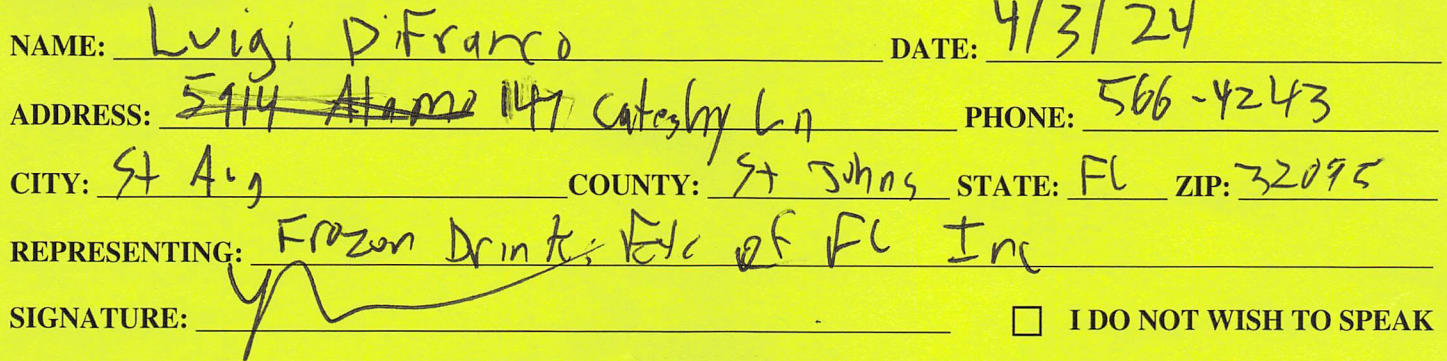 NAME: Luigi DiFranco DATE: 4/3/24
ADDRESS: 147 Catesby Ln PHONE: 566-4243
CITY: St Aug COUNTY: St Johns STATE: FL ZIP: 32095
REPRESENTING: Frozen Drinks Etc of FL Inc
SIGNATURE: I DO NOT WISH TO SPEAK